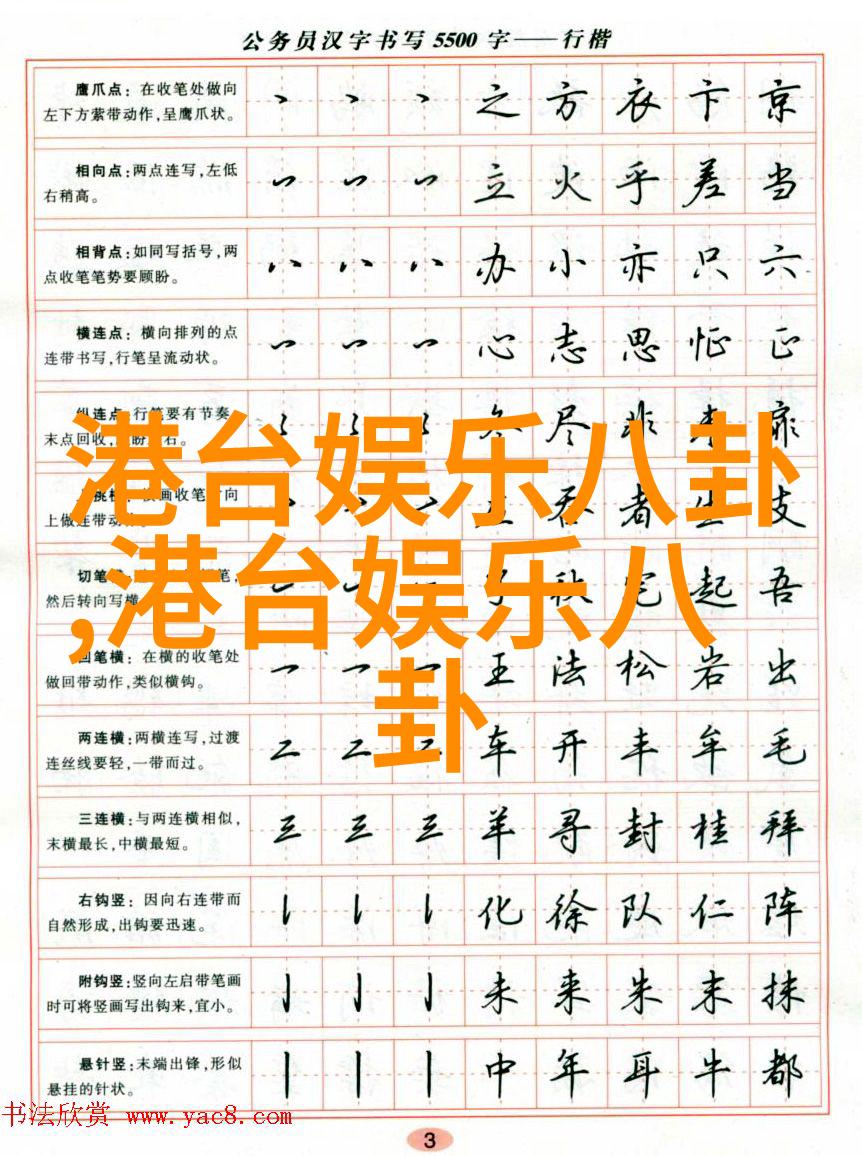 公务员汉字书写5500字——行楷
鹰爪点：在收笔处做向
左下方萦带动作,呈鹰爪状。
之 方 衣 卞 京
相向点:两点连写,左低
右稍高。
立 火 乎 差 当
相背点:如同写括号,两
点收笔笔势要顾盼。
办 小 亦 只 六
横连点：横向排列的点
连带书写,行笔呈流动状。
心 志 思 怔 正
纵连点:行笔要有节奏,
末点回收
尽 非
港台娱乐八卦
上做连带动
者 支
切笔
然后转向写横
起 吾
,港台娱乐八
回笔横：在横的收笔处
做回带动作,类似横钩。
王 法 松 岩 出
卦
两连横:两横连写,过渡
连丝线要轻,一带而过。
车 开 丰 牟 毛
三连横:与两连横相似,
末横最长,中横最短。
羊 寻 封 桂 拜
右钩竖：因向右连带而
自然形成,出钩要迅速。
化 徐 队 仁 阵
附钩竖:竖向左启带笔画
时可将竖画写出钩来,宜小。
未 来 朱 末 抹
悬针竖:末端出锋,形似
悬挂的针状。
中 年 耳 牛 都
书法欣赏 www.yac8.com
3